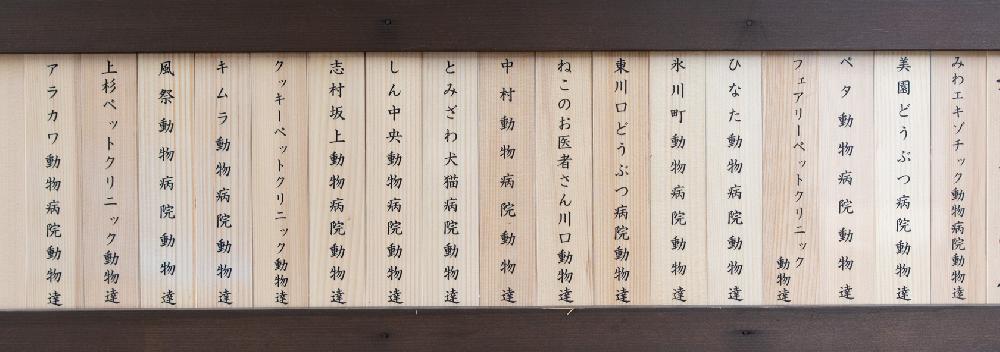 みわエキゾチック動物病院動物達
美園どうぶつ病院動物達
ペタ動物病院動物達
フェアリーペットクリニック動物達
ひなた動物病院動物達
氷川町動物病院動物達
東川口どうぶつ病院動物達
ねこのお医者さん川口動物達
中村動物病院動物達
とみざわ犬猫病院動物達
しん中央動物病院動物達
志村坂上動物病院動物達
クッキーペットクリニック動物達
キムラ動物病院動物達
風祭動物病院動物達
上杉ペットクリニック動物達
アラカワ動物病院動物達